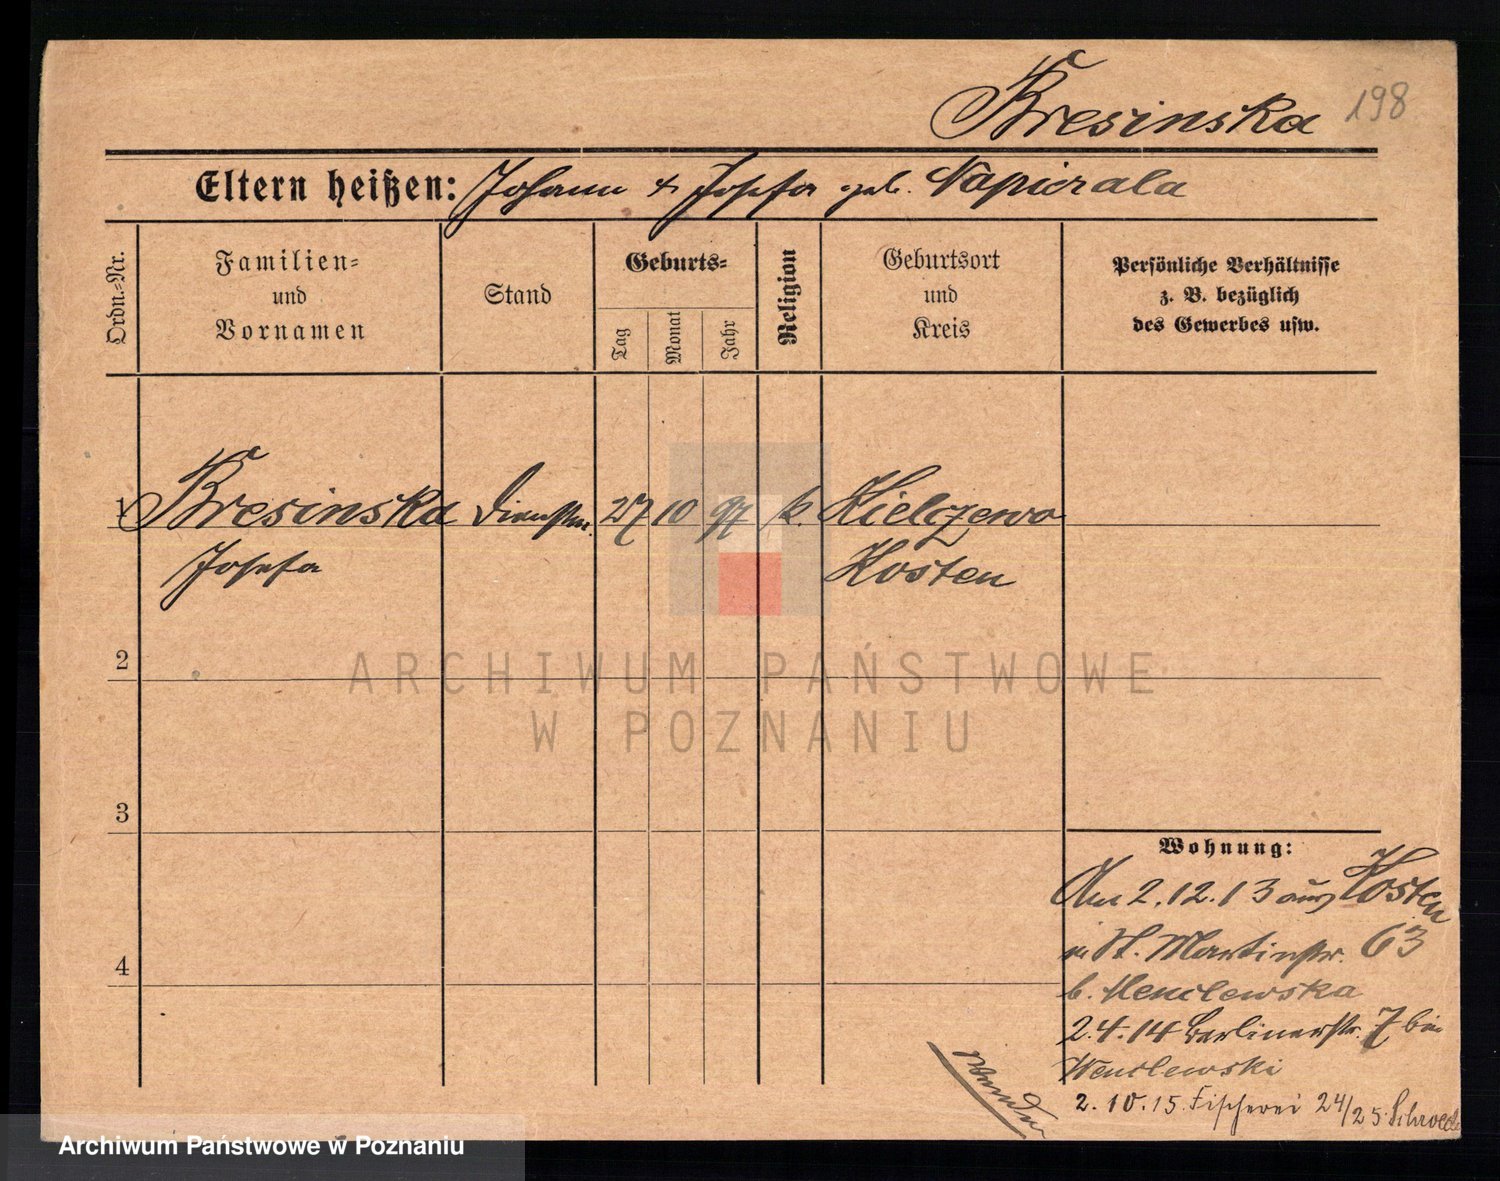 Bresinska 198
Eltern heißen: Johann & Josefa geb. Napierala
Ordn.-Nr.
Familien-
und
Vornamen
Stand
Geburts-
Tag
Monat
Jahr
Religion
Geburtsort
und
Kreis
Persönliche Verhältnisse
z. B. bezüglich
des Gewerbes usw.
1 Bresinska Dienstm. 27 10 97 k. Kielczewo
Josefa Kosten
2
ARCHIWUM PAŃSTWOWE
W POZNANIU
3
4
Wohnung:
Am 2.12.13 aus Kosten
n. St. Martinstr. 63
b. Wenclewska
2.4.14 Berlinerstr. 7 bei
Wenclewski
2.10.15. Fischerei 24/25
wenden
Archiwum Państwowe w Poznaniu